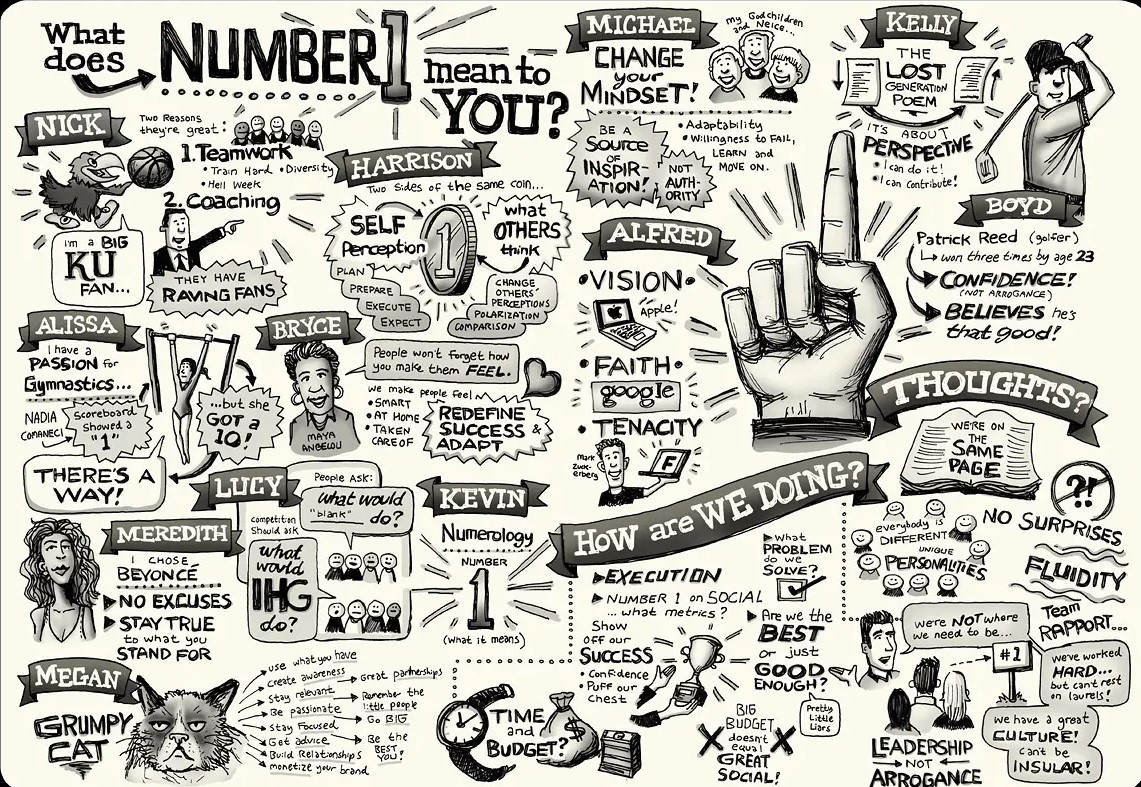 What
does
NUMBER 1
mean to
YOU?
NICK
Two Reasons
they're great:
1. Teamwork
• Train Hard • Diversity
• Hell Week
2. Coaching
I'm a BIG
KU
FAN...
THEY HAVE
RAVING FANS
HARRISON
Two sides of the same coin...
SELF
Perception
1
what
OTHERS
think
PLAN
PREPARE
EXECUTE
EXPECT
CHANGE
OTHERS'
PERCEPTIONS
POLARIZATION
COMPARISON
ALISSA
I have a
PASSION for
Gymnastics...
NADIA
COMANECI
Scoreboard
Showed a
"1"
...but she
GOT a
10!
THERE'S A
WAY!
BRYCE
MAYA
ANGELOU
People won't forget how
you make them FEEL.
we make people feel
• SMART
• AT HOME
• TAKEN
CARE OF
REDEFINE
SUCCESS &
ADAPT
MICHAEL
my Godchildren
and Neice...
CHANGE
your
MINDSET!
BE A
SOURCE
OF
INSPIR-
ATION!
NOT
AUTH-
ORITY
• Adaptability
• Willingness to FAIL,
LEARN and
MOVE ON.
KELLY
THE
LOST
GENERATION
POEM
IT'S ABOUT
PERSPECTIVE
• I can do it!
• I can contribute!
ALFRED
• VISION •
Apple!
• FAITH •
google
• TENACITY
Mark
Zuck-
erberg
F
BOYD
Patrick Reed (golfer)
won three times by age 23
CONFIDENCE!
(NOT ARROGANCE)
BELIEVES he's
that good!
LUCY
People Ask:
what would
"blank" do?
competition
Should ask
what
would
IHG
do?
KEVIN
Numerology
NUMBER
1
(what it means)
MEREDITH
I CHOSE
BEYONCÉ
NO EXCUSES
STAY TRUE
to what you
STAND FOR
MEGAN
GRUMPY
CAT
use what you have
create awareness
Stay relevant
Be passionate
Stay Focused
Get advice
Build Relationships
monetize your brand
Great partnerships
Remember the
little people
Go BIG
Be the
BEST
YOU!
HOW are WE DOING?
EXECUTION
NUMBER 1 on SOCIAL
... what metrics?
Show
off our
SUCCESS
• Confidence
• Puff our
Chest
TIME
and
BUDGET?
What
PROBLEM
do we
SOLVE?
Are we the
BEST
or just
GOOD
ENOUGH?
BIG
BUDGET
doesn't
equal
GREAT
SOCIAL!
Pretty
Little
Liars
THOUGHTS?
WE'RE ON
THE
SAME
PAGE
?!
NO SURPRISES
everybody is
DIFFERENT
UNIQUE
PERSONALITIES
FLUIDITY
Team
RAPPORT...
we're NOT where
we need to be...
#1
we've worked
HARD...
but can't rest
on laurels!
we have a great
CULTURE!
can't be
INSULAR!
LEADERSHIP
NOT
ARROGANCE